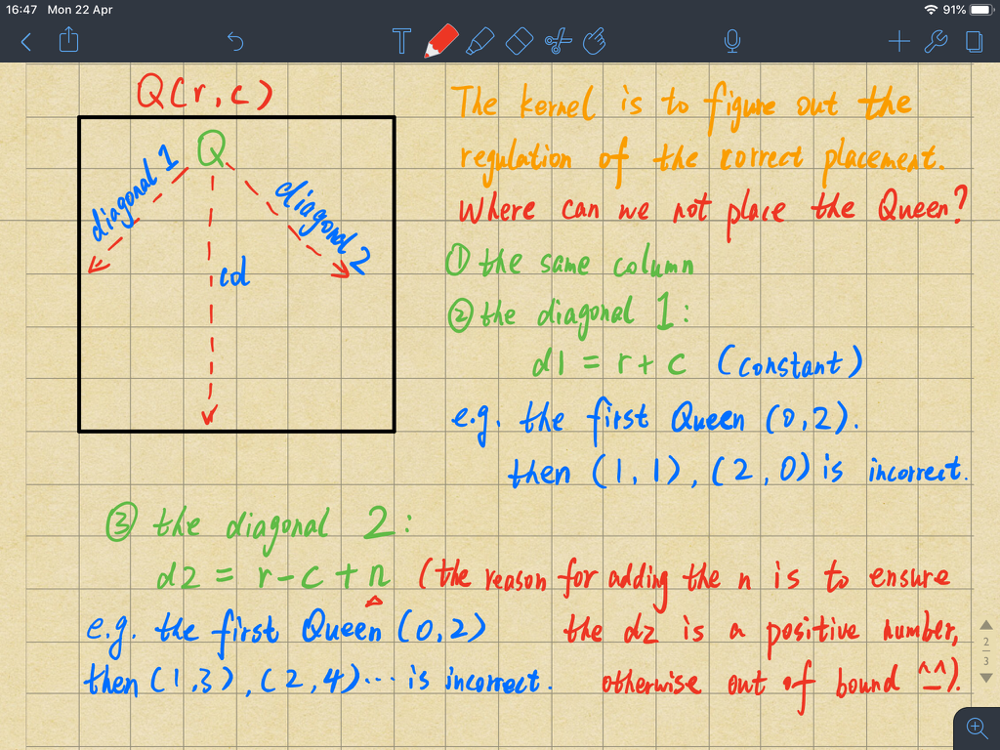 16:47 Mon 22 Apr
91%
T
Q(r,c)
Q
diagonal 1
diagonal 2
cd
The kernel is to figure out the
regulation of the correct placement.
Where can we not place the Queen?
① the same column
② the diagonal 1:
d1 = r + c (constant)
e.g. the first Queen (0,2).
then (1,1), (2,0) is incorrect.
③ the diagonal 2:
d2 = r - c + n (the reason for adding the n is to ensure
the d2 is a positive number,
otherwise out of bound ^_^).
e.g. the first Queen (0,2)
then (1,3), (2,4)... is incorrect.
2
3